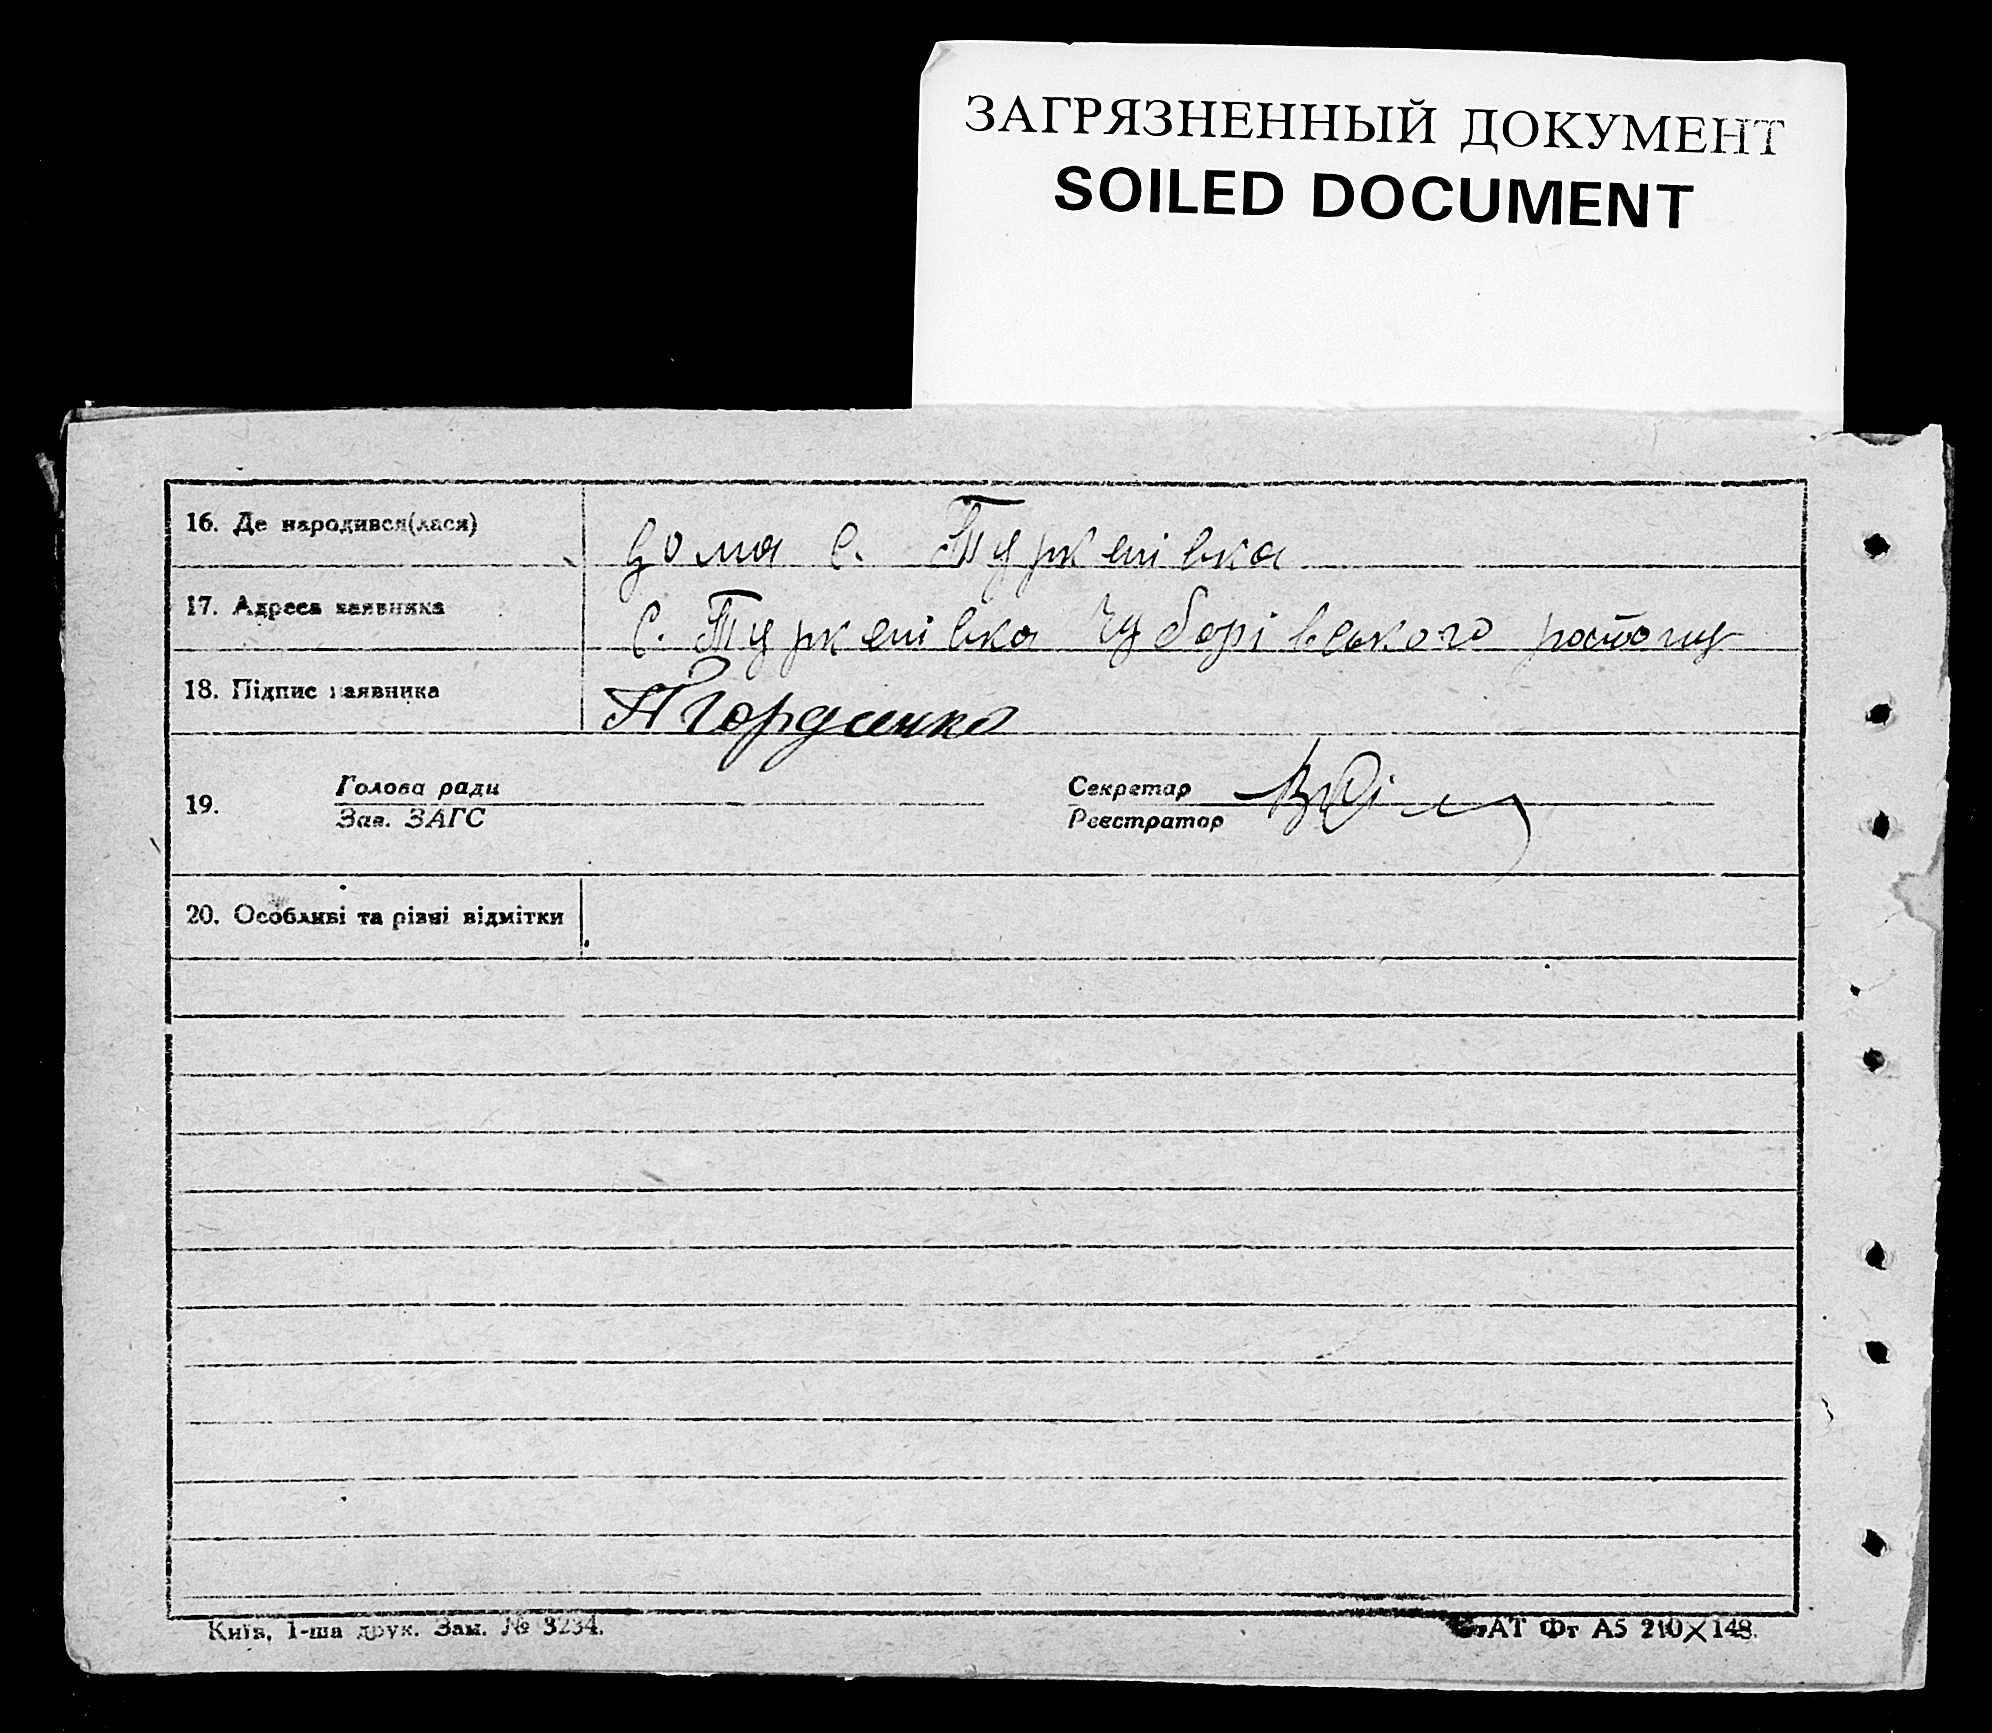 ЗАГРЯЗНЕННЫЙ ДОКУМЕНТ
SOILED DOCUMENT
16. Де народився(лася) дома с. Туркенівка
17. Адреса заявника с. Туркенівка Чубарівського району
18. Підпис заявника А Гордиенко
19. Голова ради Секретар
Зав. ЗАГС Реєстратор
20. Особливі та різні відмітки
Київ, 1-ша друк. Зам. № 3234.
СтАТ Фт А5 210×148.